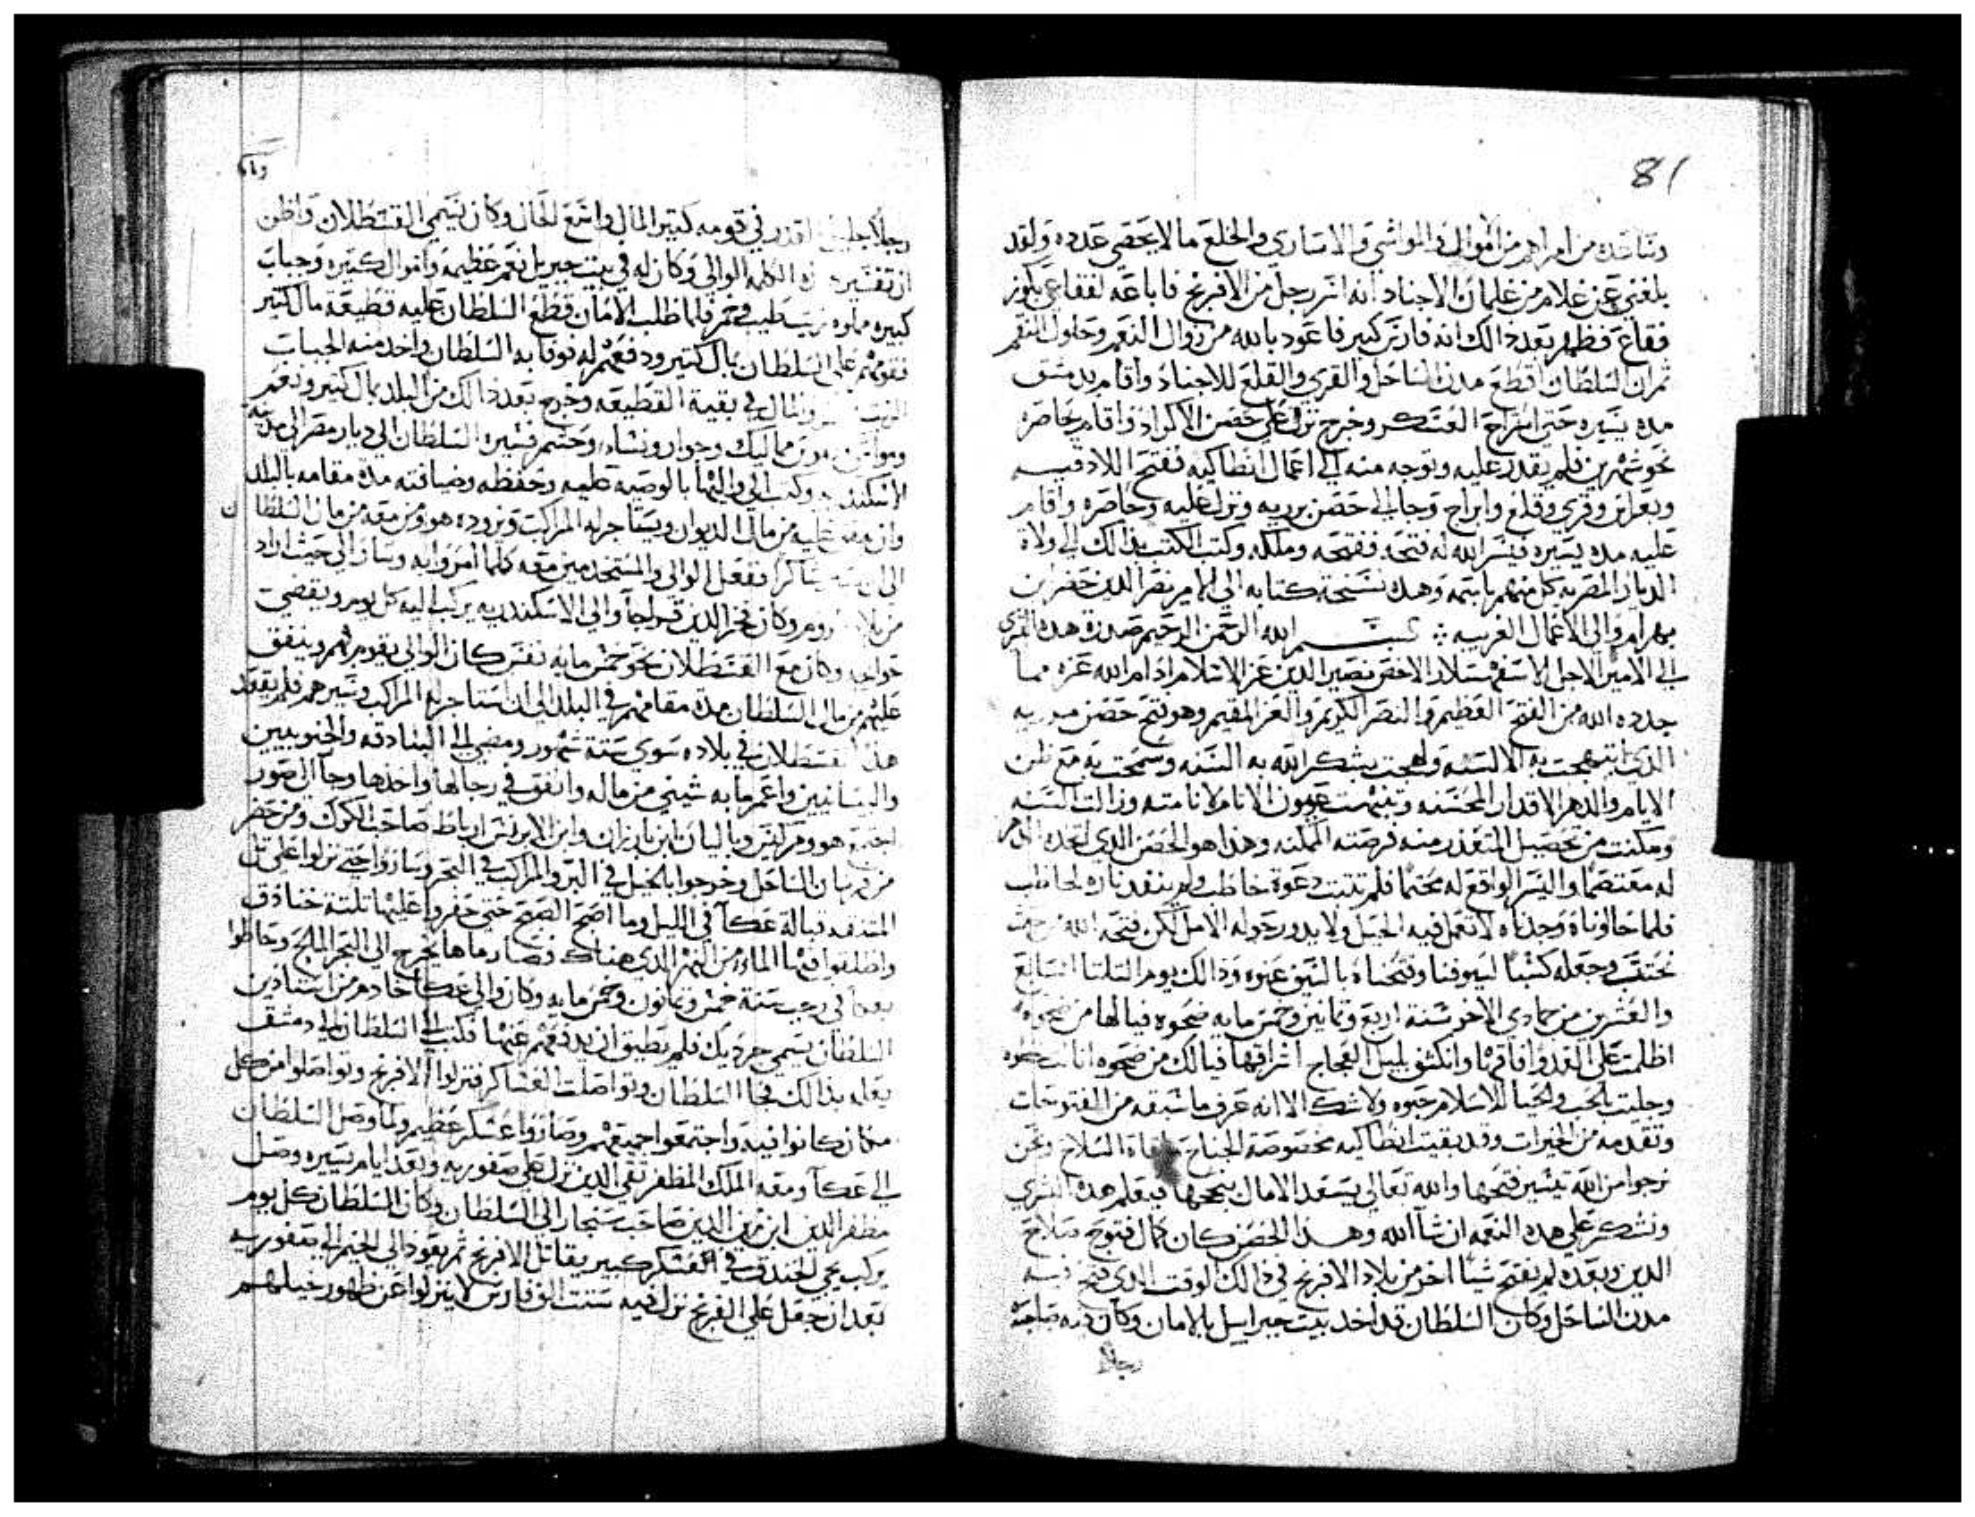 81
من امراهم من الاموال والمواشي والاساري والخلع ما لا يحصي عدده ولقد
بلغني عن غلام من غلمان الاجناد انه اسر رجل من الافرنج فاباعه لفقاعي بكوز
فقاع فظهر بعد ذالك انه فارس كبير فاعود بالله من زوال النعم وحلول النقم
ثم ان السلطان اقطع مدن الساحل والقري والقلع للاجناد واقام بدمشق
مده يسيره حتي استراح العسكر وخرج نزل علي حصن الاكراد واقام يحاصره
نحو شهرين فلم يقدر عليه وتوجه منه الي اعمال انطاكيه ففتح اللادقيه
وبغراس وقري وقلع وابراج وجا الي حصن برزيه ونزل عليه وحاصره واقام
عليه مده يسيره فيسر الله له فتحه ففتحه وملكه وكتب الكتب بذالك الي ولاة
الديار المصريه كل منهم باسمه وهده نسخة كتابه الي الامير نصر الدين خضر بن
بهرام والي الاعمال الغربيه بسم الله الرحمن الرحيم صدرة هده البشري
الي الامير الاجل الاسفهسلار الاخص نصير الدين عز الاسلام ادام الله عزه مما
جدده الله من الفتح العظيم والنصر الكريم والعز المقيم وهو فتح حصن برزيه
الدي ابتهجت به الالسنه ولهجت بشكر الله به السنه وسمحت به مع ظن
الايام والدهر الاقدار المحسنه وتنبهت عيون الانام لانامته وزالت السنه
ومكنت من تحصيل المتعذر منه فرصته الممكنه وهذا هو الحصن الدي
له معتصما واليسر الواقع له محتما فلم تثبت دعوة خاطب ولم ينفد ناره لحاطب
فلما حاولناه وجدناه لا تعمل فيه الحيل ولا يدور حوله الامل لكن فتحه الله من حيث
نحتسب وجعله كسبا لسيوفنا وفتحناه بالسيف عنوه وذالك يوم الثلثا السابع
والعشرين من جمادي الاخر سنة اربع وثمانين وخمس مايه ضحوه فيا لها من ضحوه
اظلمت علي العدو افاقها وانكشف بليل العجاج اشراقها فيالك من ضحوه
وجليت بالحب والحيا للاسلام حبوه ولا شك الا انه عرف ما سبقه من الفتوحات
وتقدمه من الخيرات وقد بقيت انطاكيه مخصوصة الجناح السلاح ونحن
نرجوا من الله تيسير فتحها والله تعالي يسعد الامال بنجحها فيعلم هده البشري
ونشكر علي هده النعمه ان شا الله وهدا الحصن كان كمال فتوح صلاح
الدين وبعده لم يفتح شيا اخر من بلاد الافرنج في ذالك الوقت الدي فتح فيه
مدن الساحل وكان السلطان قد اخد بيت جبرايل بالامان وكان فيه صاحبه
رجلا
رجلا جليل القدر في قومه كثير المال واسع الحال وكان يسمي القسطلان واظن
ان تفسير هذه الكلمه الوالي وكان له في بيت جبريل نعم عظيمه واموال كثيره وجباب
كبيره مملوه زيت طيب وخمر فلما طلب الامان قطع السلطان عليه قطيعه مال كثير
فقومهم علي السلطان بمال كثير ودفعهم له فوفا به السلطان واخد منه الجباب
الزيت والخمر والمال في بقية القطيعه وخرج بعد ذالك من البلد بمال كثير ونعم
ومواشي ومن مماليك وجوار ونساء وحشم فسيره السلطان الي ديار مصر الي مدينة
الاسكندريه وكتب الي واليها بالوصيه عليه وحفظه وضيافته مدة مقامه بالبلد
وان ينفق عليه من مال الديوان ويستاجر له المراكب ويزوده هو ومن معه من مال السلطان
الي ففعل الوالي والمستخدمين معه كلما امروا به وسار الي حيث اراد
من بلاد الروم وكان فخر الدين قراجا والي الاسكندريه يركب اليه كل يوم ويقضي
حوايجه وكان مع القسطلان نحو خمس مايه نفس كان الوالي يقوم بهم وينفق
عليهم من مال السلطان مدة مقامهم في البلد الي ان استاجر له المراكب وسيرهم فلم يقعد
هذا القسطلان في بلاده سوي ستة شهور ومضي الي البنادقه والجنويين
والبيسانيين واعمر مايه شيني من ماله وانفق في رجالها واخدها وجا الي صور
اجتمع هو والمركيز وباليان ابن بارزان وابن الابرنس ارناط صاحب الكرك ومن حضر
من فرسان الساحل وخرجوا بالخيل في البر والمراكب في البحر وساروا حتي نزلوا علي تل
قبالة عكا في الليل وما اصبح الصبح حتي حفروا عليها ثلثة خنادق
واطلقوا فيها الماء من النهر الدي هناك فصار ماها يخرج الي البحر المالح وحاطوا
بعكا في رجب سنة خمس وثمانون وخمس مايه وكان والي عكا خادم من استادين
السلطان يسمي جرديك فلم يطيق ان يدفعهم عنها فكتب الي السلطان الي دمشق
يعلمه بذالك فجا السلطان وتواصلت العساكر فنزلوا الافرنج وتواصلوا من كل
مكان كانوا فيه واجتمعوا جميعهم وصاروا عسكر عظيم ولما وصل السلطان
الي عكا ومعه الملك المظفر تقي الدين نزل علي صفوريه وبعد ايام يسيره وصل
مظفر الدين ابن زين الدين صاحب سنجار الي السلطان وكان السلطان كل يوم
يركب يجي الخندق في العسكر كبير يقاتل الافرنج ثم يعود الي الخيم الي صفوريه
بعد ان جعل علي الفرنج نزل فيه ستت الف فارس لا ينزلوا عن ظهور خيلهم